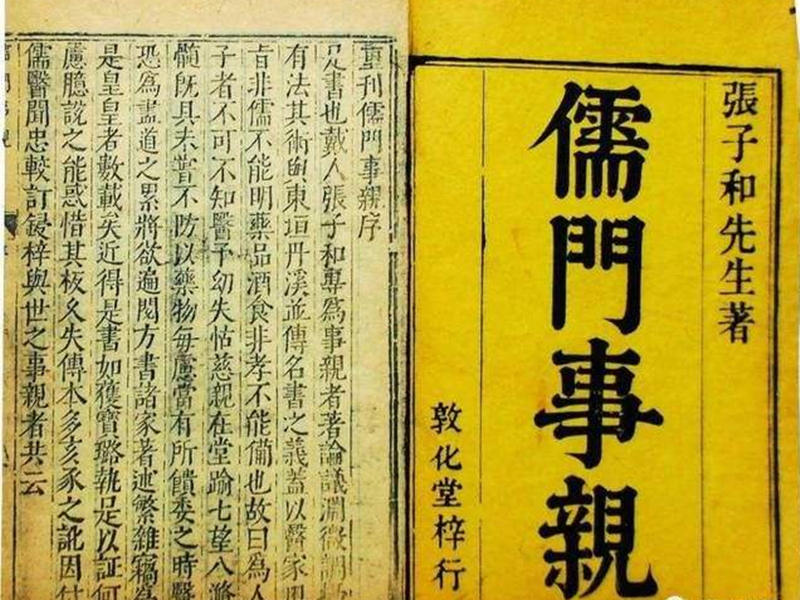 張子和先生著
儒門事親
敦化堂梓行
重刊儒門事親序
是書也戴人張子和專爲事親者著論議淵微調
有法其術與東垣丹溪並傳名書之義蓋以醫家
旨非儒不能明藥品酒食非孝不能備也故曰爲人
子者不可不知醫予幼失怙慈親在堂踰七望八滫
髓旣具未嘗不防以藥物每慮當有所饋委之時醫
恐爲盡道之累將欲遍閱方書諸家著述繁雜竊爲
是皇皇者數載矣近得是書如獲寶璐執是以証何
慮臆說之能惑惜其板久失傳本多亥豕之訛因付
儒醫聞忠較訂鋟梓與世之事親者共云